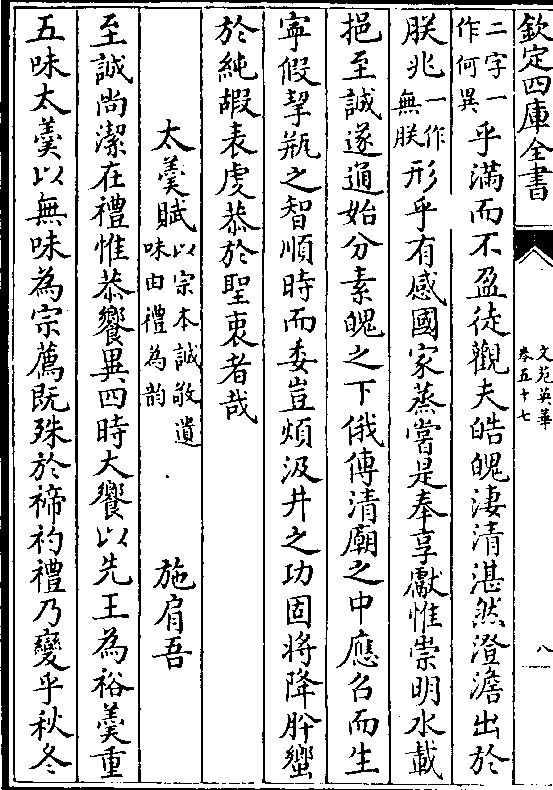 欽定四庫全書
文苑英華
卷五十七
八
二字一作何異乎滿而不盈徒觀夫皓魄淒清湛然澄澹出於
朕兆一作無朕形乎有感國家蒸嘗是奉享獻惟崇明水載
挹至誠遂通始分素魄之下俄傳清廟之中應召而生
寧假挈瓶之智順時而委豈煩汲井之功固將降肸蠁
於純嘏表虔恭於聖衷者哉
太羹賦以宗本誠敬遺味由禮為韵
施肩吾
至誠尚潔在禮惟恭饗異四時大饗以先王為祫羹重
五味太羹以無味為宗薦既殊於禘礿禮乃變乎秋冬